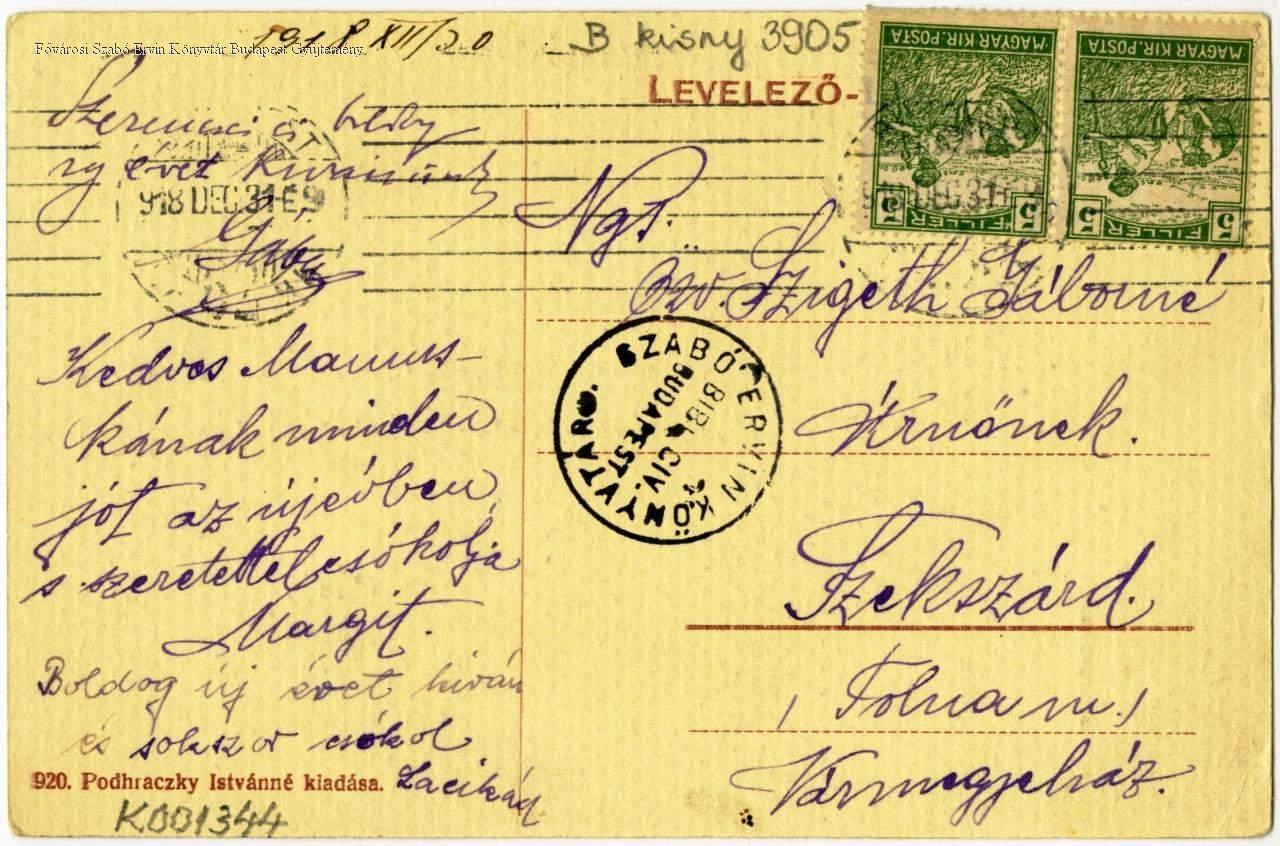 Fővárosi Szabó Ervin Könyvtár Budapest Gyűjtemény
1918 XII/30
B kisny 3905
LEVELEZŐ-
MAGYAR KIR. POSTA
5 FILLÉR 5
MAGYAR KIR. POSTA
5 FILLÉR 5
Szerencsés boldog
új évet kívánunk
Gábor
918 DEC. 31 E 9
Kedves Mamus-
kának minden
jót az újévben
s szeretettel csókolja
Margit.
Boldog új évet kiván
és sokszor csókol
Lacikád
920. Podhraczky Istvánné kiadása.
K001344
Ngs.
özv. Szigeth Gáborné
Úrnőnek.
Szekszárd.
(Tolna m.)
Vármegyeház.
SZABÓ ERVIN KÖNYVTÁR
BIBL. CIV.
BUDAPEST